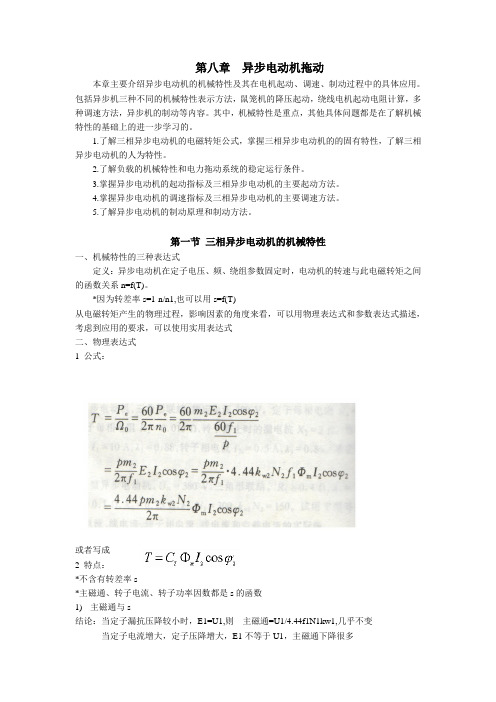 第八章 异步电动机拖动
本章主要介绍异步电动机的机械特性及其在电机起动、调速、制动过程中的具体应用。
包括异步机三种不同的机械特性表示方法，鼠笼机的降压起动，绕线电机起动电阻计算，多
种调速方法，异步机的制动等内容。其中，机械特性是重点，其他具体问题都是在了解机械
特性的基础上的进一步学习的。
1.了解三相异步电动机的电磁转矩公式，掌握三相异步电动机的的固有特性，了解三相
异步电动机的人为特性。
2.了解负载的机械特性和电力拖动系统的稳定运行条件。
3.掌握异步电动机的起动指标及三相异步电动机的主要起动方法。
4.掌握异步电动机的调速指标及三相异步电动机的主要调速方法。
5.了解异步电动机的制动原理和制动方法。
第一节 三相异步电动机的机械特性
一、机械特性的三种表达式
定义：异步电动机在定子电压、频、绕组参数固定时，电动机的转速与此电磁转矩之间
的函数关系 n=f(T)。
*因为转差率 s=1-n/n1,也可以用 s=f(T)
从电磁转矩产生的物理过程，影响因素的角度来看，可以用物理表达式和参数表达式描述，
考虑到应用的要求，可以使用实用表达式
二、物理表达式
1 公式：
T = Pe/Ω0 = 60/2π Pe/n0 = 60/2π m2E2I2cosφ2/(60f1/p)
= pm2/2πf1 E2I2cosφ2 = pm2/2πf1 · 4.44kw2N2f1ΦmI2cosφ2
= 4.44pm2kw2N2/2π ΦmI2cosφ2
或者写成
T = CtΦmI2cosφ2
2 特点：
*不含有转差率 s
*主磁通、转子电流、转子功率因数都是 s 的函数
1) 主磁通与 s
结论：当定子漏抗压降较小时，E1=U1,则 主磁通=U1/4.44f1N1kw1,几乎不变
当定子电流增大，定子压降增大，E1 不等于 U1，主磁通下降很多